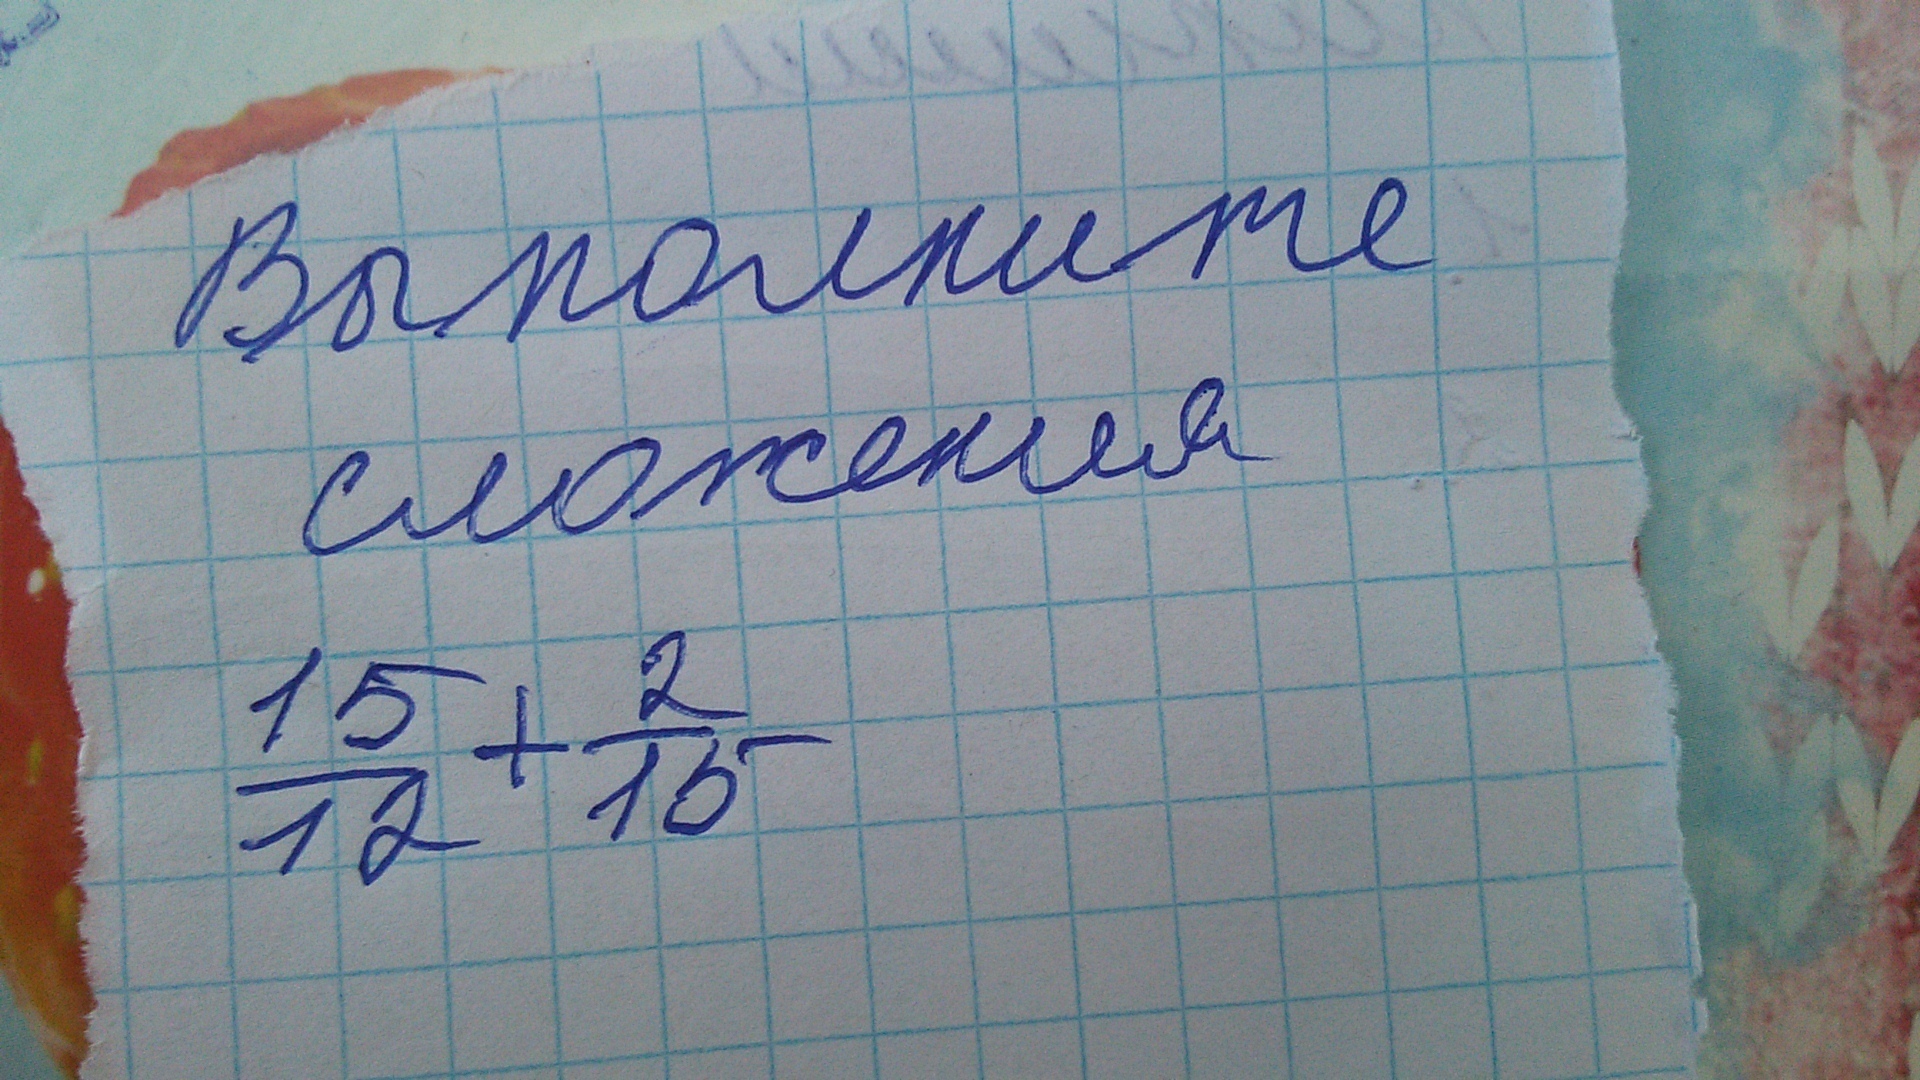 Выполните
сложения
15/12 + 2/15